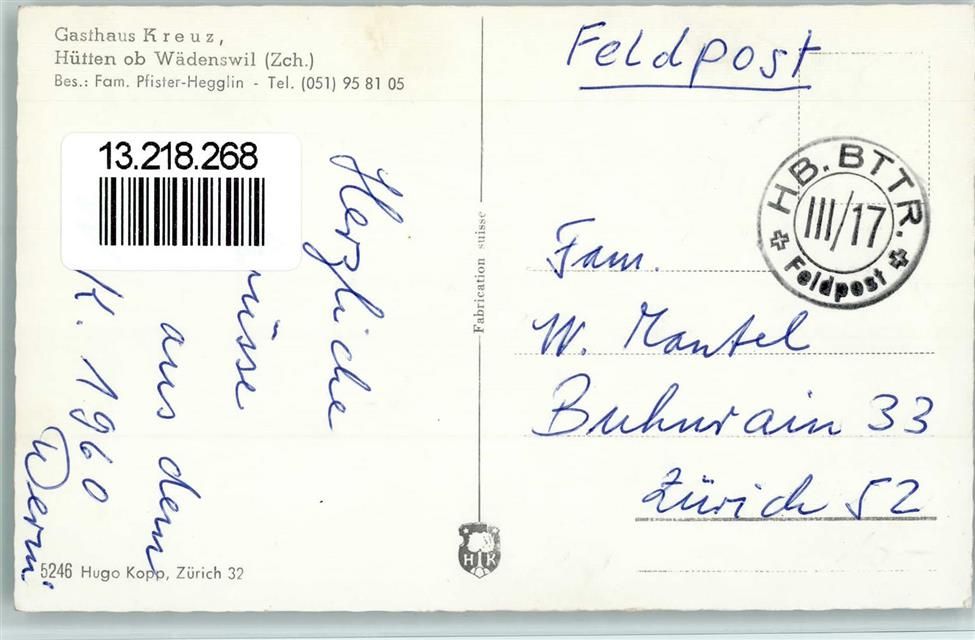 Gasthaus Kreuz,
Hütten ob Wädenswil (Zch.)
Bes.: Fam. Pfister-Hegglin - Tel. (051) 95 81 05
13.218.268
Herzliche
üsse
aus dem
K. 1960
Werni
5246 Hugo Kopp, Zürich 32
Fabrication suisse
HK
Feldpost
HB. BTTR.
III/17
Feldpost
Fam.
W. Mantel
Buhnrain 33
Zürich 52